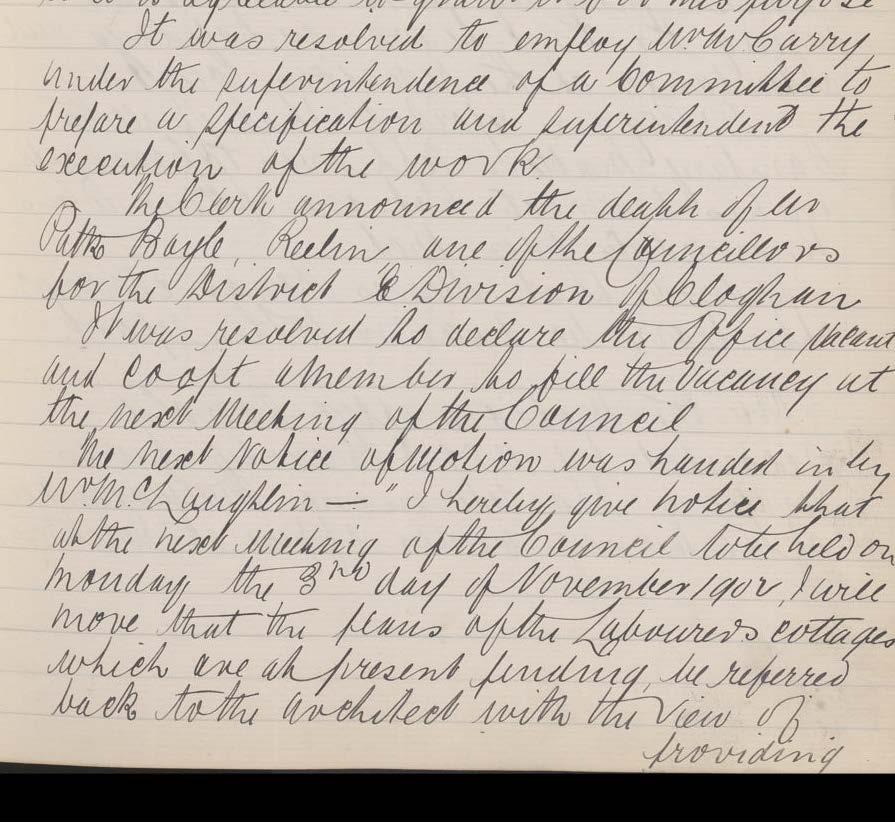 It was resolved to employ Mr McCarry
under the superintendence of a Committee to
prepare a specification and superintendent the
execution of the work
The Clerk announced the death of Mr
Patk Boyle, Reelin, one of the Councillors
for the District E Division of Cloghan
It was resolved to declare the Office Vacant
and coopt a Member to fill the Vacancy at
the next Meeting of the Council
The next Notice of Motion was handed in by
Mr McLaughlin — "I hereby give notice that
at the next Meeting of the Council to be held on
Monday the 3rd day of November 1902, I will
move that the plans of the Labourers cottages
which are at present pending, be referred
back to the architect with the View of
providing